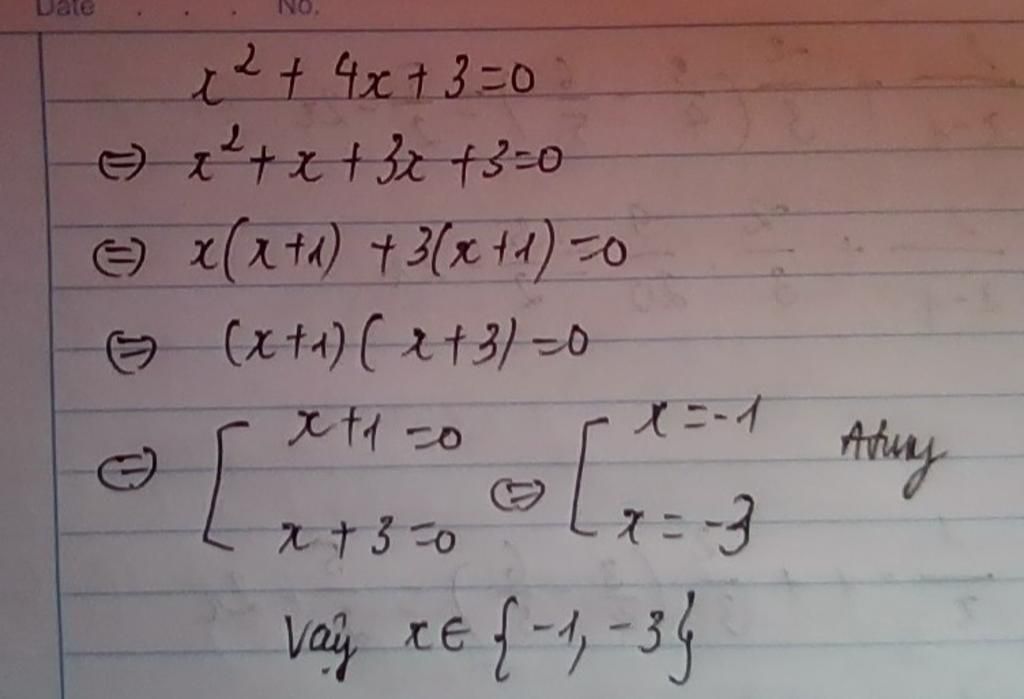 Date . . . No.
x² + 4x + 3 = 0
⇔ x² + x + 3x + 3 = 0
⇔ x(x+1) + 3(x+1) = 0
⇔ (x+1)(x+3) = 0
⇔ [ x+1 = 0 ⇔ [ x = -1
x + 3 = 0 x = -3
Vậy x ∈ {-1, -3}